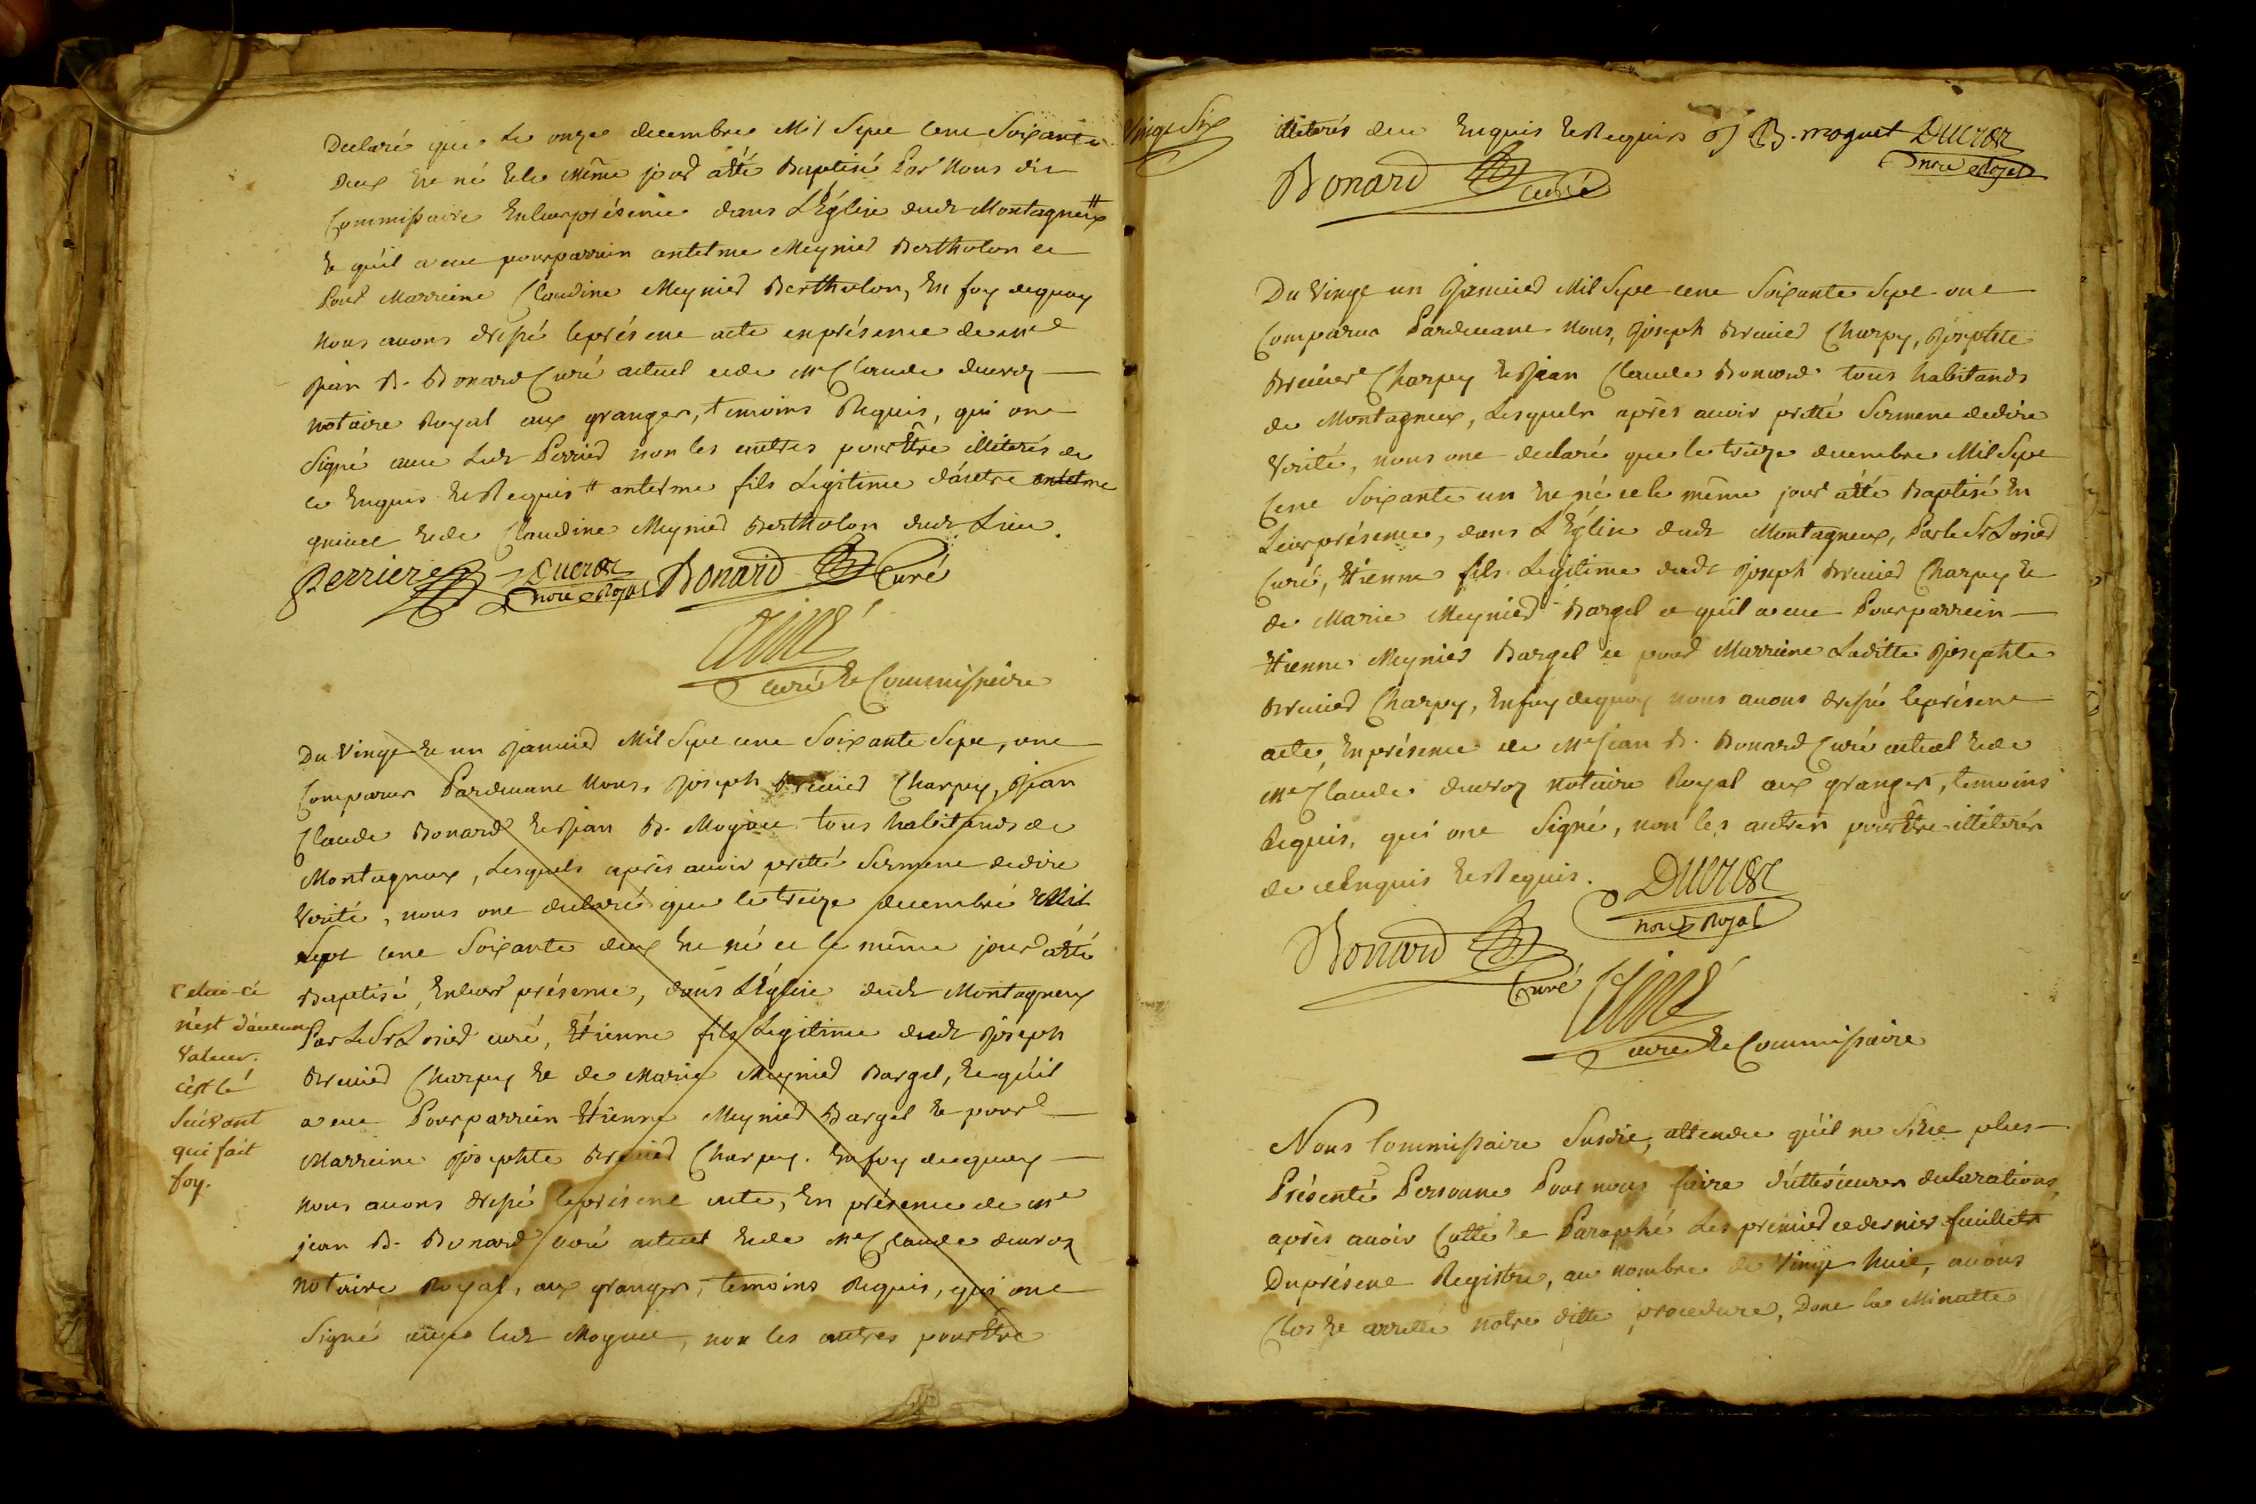 Declaré que Le onze decembre Mil Sept Cent Soixante
Deux Est né Et le même jour aété Baptisé Par Nous dit
Commissaire Enleur présence dans L'Église dudt Montagneux #
Et quil a eut pour parrein antelme Meynier Bertholon et
Pour Marreine Claudine Meynier Bertholon, En foy dequoy
nous avons dressé leprésent acte enprésence de me
jean B. Bonard Curé actuel et de me Claude ducroz
notaire Royal aux granges, temoins Requis, qui ont
Signé avec Ledt Perrier non les autres pour Etre illiterés de
ce Enquis Et Requis # antelme fils Légitime dautre antelme
et de Claudine Meynier Bertholon dudt Lieu.
Perrier Ducroz Bonard Curé
nore Royal
curé Et Commissaire
Du Vingt Et un Janvier Mil Sept cent Soixante Sept, ont
Comparu Pardevant Nous, Joseph Brevier Charpy, Jean
Claude Bonard Et Jean B. tous habitands de
Montagneux, Lesquels après avoir pretté Serment dedire
Verité, nous ont declaré que le treize decembre Mil
Sept Cent Soixante deux Est né et le même jour aété
Baptisé, Enleur présence, dans L'Église dudt Montagneux
Par Le Sr Losier curé, Etienne fils Legitime dudt Joseph
Brevier Charpy Et de Marie Meynier Bargel, Et quil
a eut Pour parrein Etienne Meynier Bargel Et pour
Marreine Josephte Brevier Charpy. En foy dequoy
nous avons dressé leprésent acte, En présence de me
jean B. Bonard Curé actuel Et de Me Claude ducroz
notaire Royal, aux granges, temoins Requis, qui ont
Signé avec ledt non les autres pour Etre
Celui-ci
n'est d'aucune
Valeur.
c'est le
Suivant
qui fait
foy.
Vingt Six
illiterés dece Enquis Et Requis J B. moguet Ducroz
Bonard curé nore Royal
Du Vingt un Janvier Mil Sept cent Soixante Sept ont
Comparu Pardevant Nous, Joseph Brevier Charpy, Josephte
Brevier Charpy Et Jean Claude Bonard tous habitands
de Montagneux, Lesquels après avoir pretté Serment dedire
Verité, nous ont declaré que le treize decembre Mil Sept
Cent Soixante un Est né et le même jour aété Baptisé En
Leur présence, dans L'Église dudt Montagneux, Par le Sr Losier
Curé, Etienne fils Legitime dudt Joseph Brevier Charpy Et
de Marie Meynier Bargel et quil a eut Pour parrein
Etienne Meynier Bargel et pour Marreine Laditte Josephte
Brevier Charpy, Enfoy dequoy nous avons dressé leprésent
acte, En présence de Me jean B. Bonard Curé actuel Et de
Me Claude ducroz notaire Royal aux granges, temoins
Requis, qui ont Signé, non les autres pour Etre illiterés
de ce Enquis Et Requis. Ducroz
nore Royal
Bonard Curé
curé Et Commissaire
Nous Commissaire Susdit, attendu qu'il ne S'est plus
Présenté Personne Pour nous faire d'ultérieures declarations,
après avoir Cotté Et Paraphé Les premier et dernier feuillets
Du présent Registre, au nombre de Vingt huit, avons
Clos Et arretté notre ditte procedure, Dont la Minutte